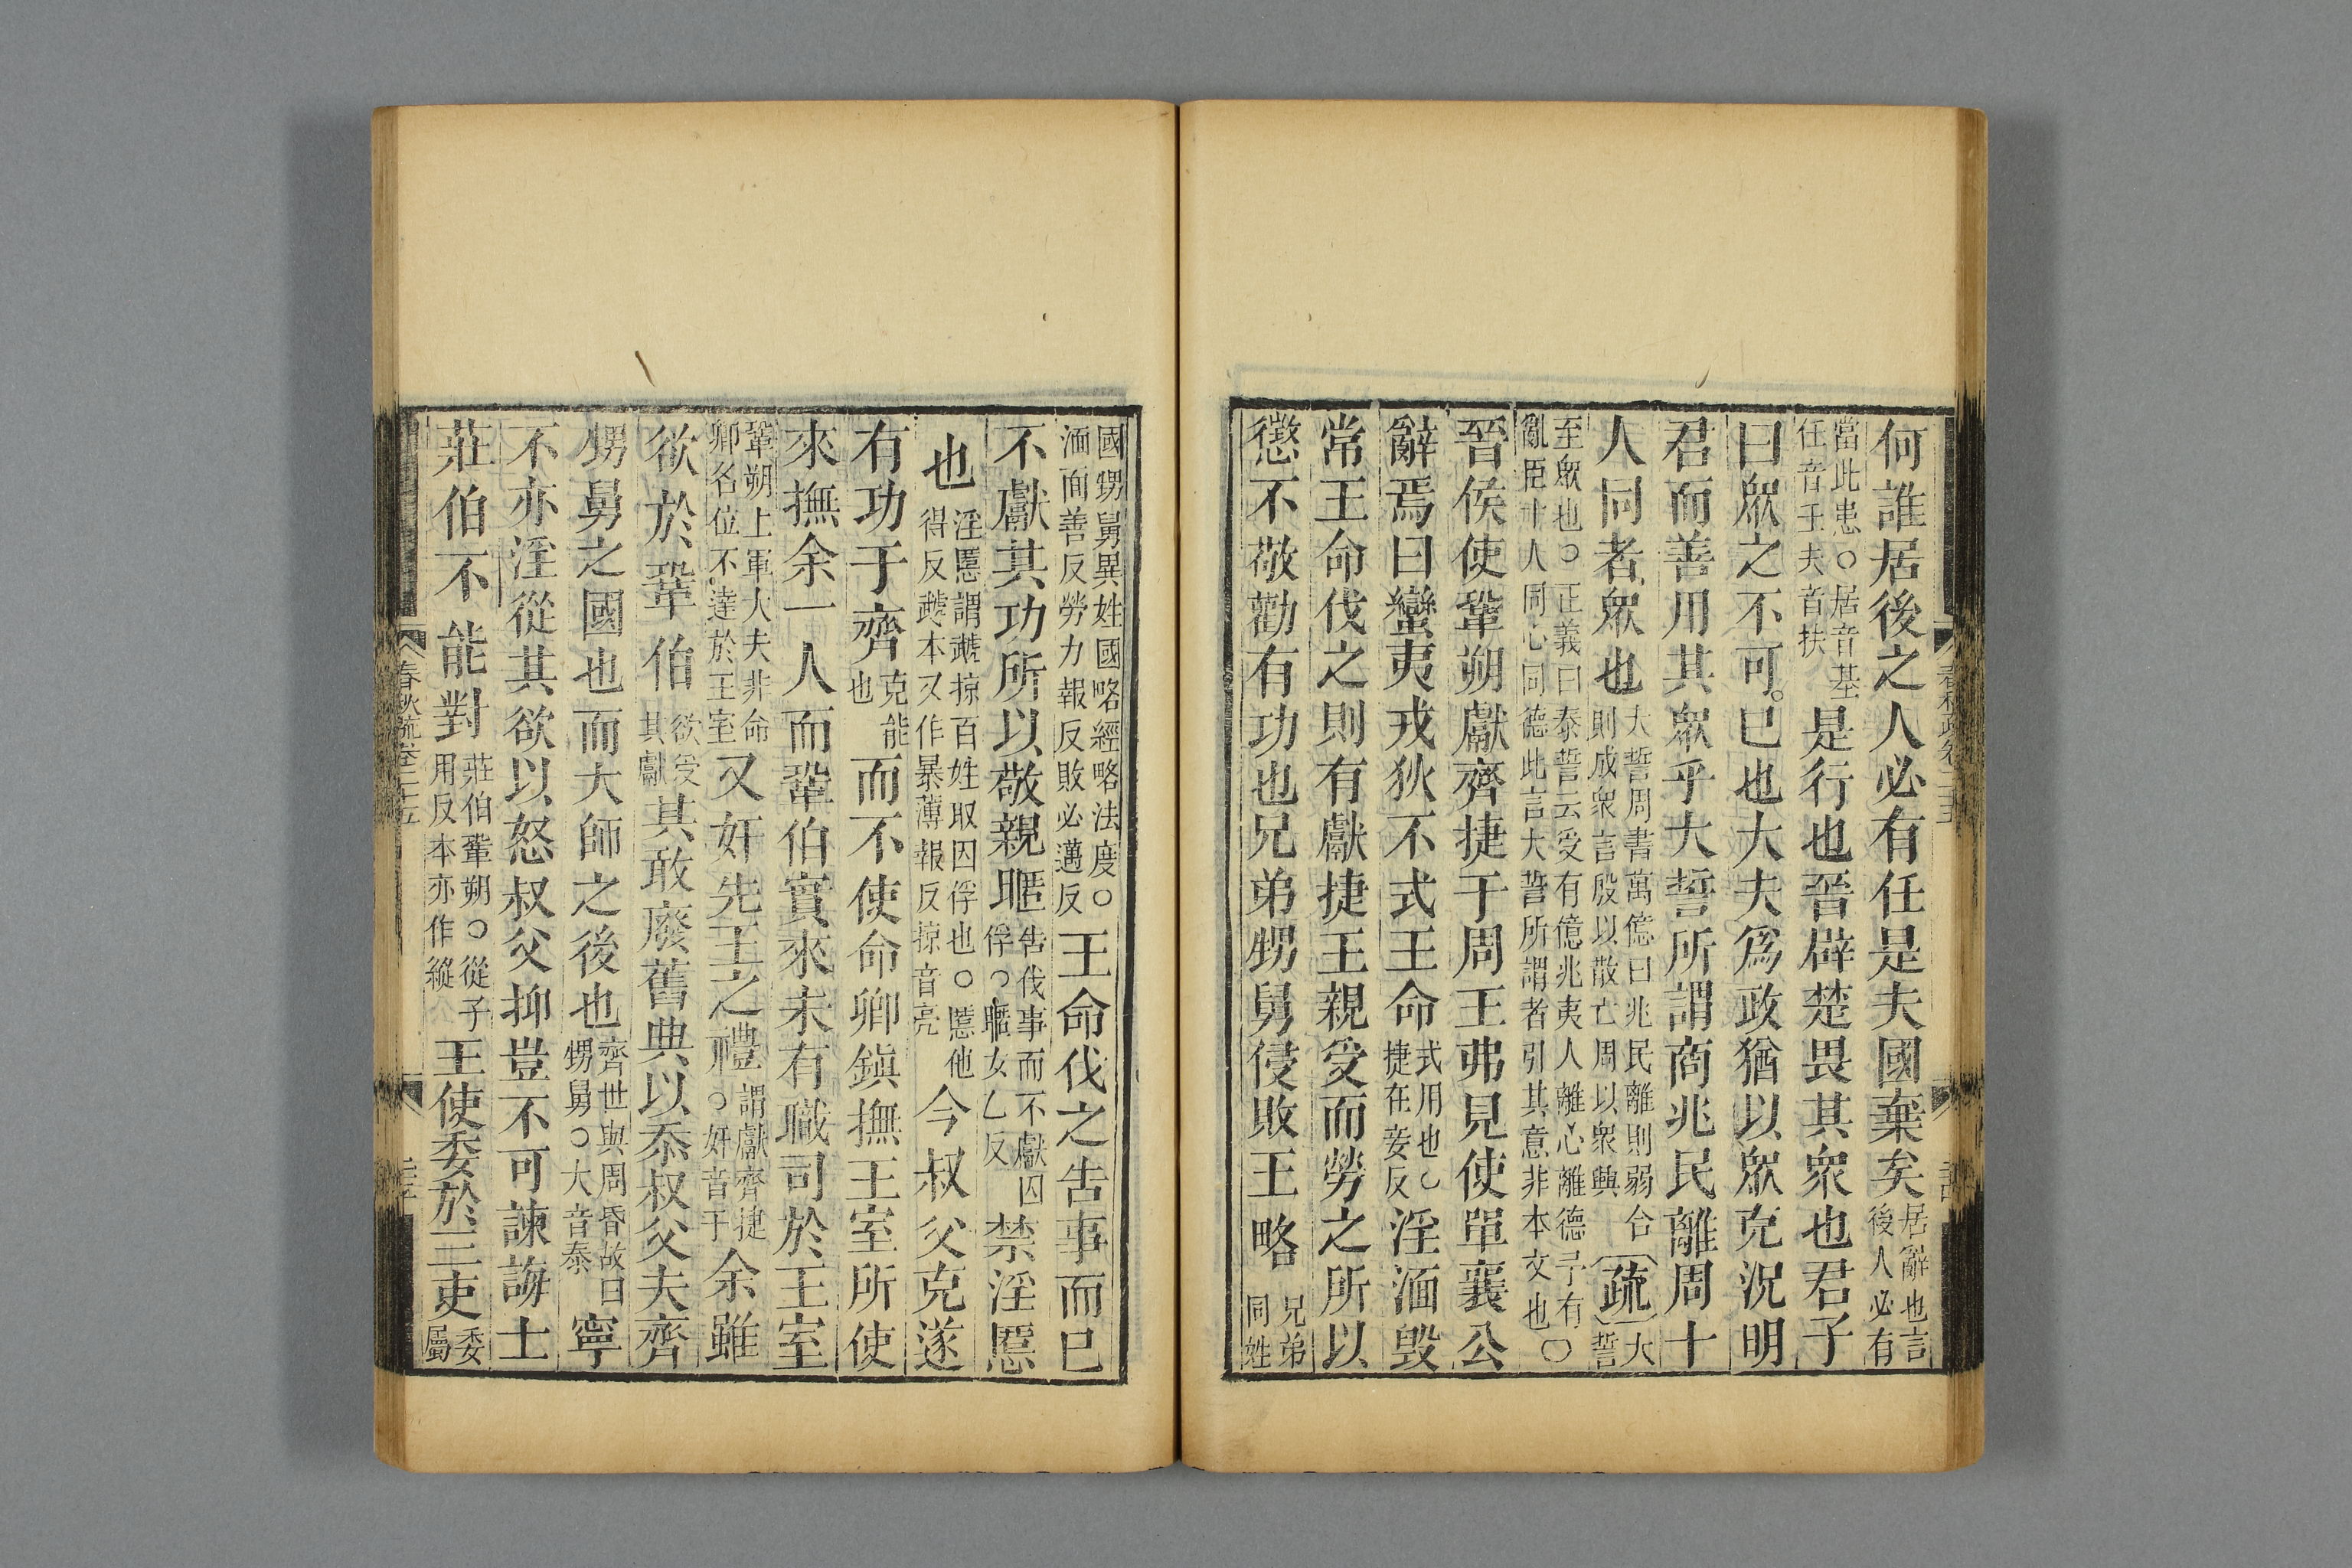 何誰居後之人必有任是夫國棄矣居辭也言後人必有
當此患○居音基任音壬夫音扶是行也晉辟楚畏其衆也君子
曰衆之不可已也大夫爲政猶以衆克況明
君而善用其衆乎大誓所謂商兆民離周十
人同者衆也大誓周書萬億曰兆民離則弱合則成衆言殷以散亡周以衆興疏大誓
至衆也○正義曰泰誓云受有億兆夷人離心離德予有亂臣十人同心同德此言大誓所謂者引其意非本文也○
晉侯使鞏朔獻齊捷于周王弗見使單襄公
辭焉曰蠻夷戎狄不式王命式用也○捷在妾反淫湎毀
常王命伐之則有獻捷王親受而勞之所以
懲不敬勸有功也兄弟甥舅侵敗王略兄弟同姓
國甥舅異姓國略經略法度○湎面善反勞力報反敗必邁反王命伐之告事而已
不獻其功所以敬親暱告伐事而不獻囚俘○暱女乙反禁淫慝
也淫慝謂虣掠百姓取囚俘也○慝他得反虣本又作暴薄報反掠音亮今叔父克遂
有功于齊克能也而不使命卿鎮撫王室所使
來撫余一人而鞏伯實來未有職司於王室
鞏朔上軍大夫非命卿名位不達於王室又奸先王之禮謂獻齊捷○奸音干余雖
欲於鞏伯欲受其獻其敢廢舊典以忝叔父夫齊
甥舅之國也而大師之後也齊世與周昏故曰甥舅○大音泰寧
不亦淫從其欲以怒叔父抑豈不可諫誨士
莊伯不能對莊伯鞏朔○從子用反本亦作縱王使委於三吏委屬
春秋疏卷二十五